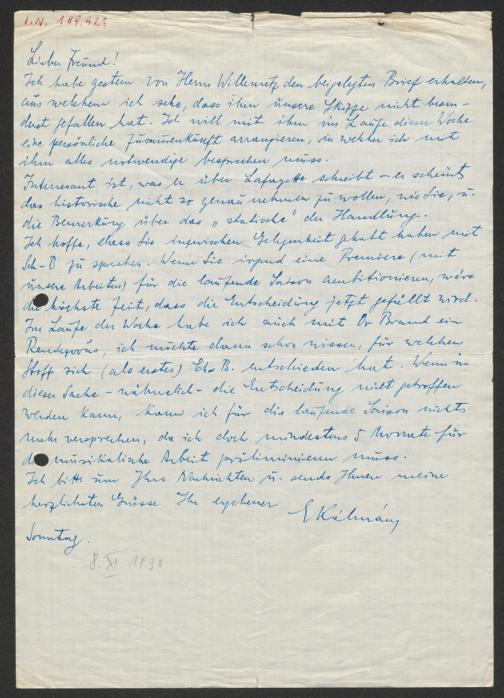 I.N. 189.923
Lieber Freund!
Ich habe gestern von Herrn Willemetz den beigelegten Brief erhalten,
aus welchem ich sehe, dass ihm unsere Skizze nicht beson-
ders gefallen hat. Ich will mit ihm im Laufe dieser Woche
eine persönliche Zusammenkunft arrangieren, in welcher ich mit
ihm alles notwendige besprechen muss.
Interessant ist, was er über Lafayette schreibt – es scheint
das historische nicht so genau nehmen zu wollen, wie Sie, u.
die Bemerkung über das „statische" der Handlung.
Ich hoffe, dass Sie inzwischen Gelegenheit gehabt haben mit
Sch-B zu sprechen. Wenn Sie irgend eine Premiere (mit
unseren Arbeiten) für die laufende Saison ambitionieren, wäre
die höchste Zeit, dass die Entscheidung jetzt gefällt wird.
Im Laufe der Woche habe ich auch mit Dr Brand ein
Rendezvous, ich möchte dann schon wissen, für welchen
Stoff sich (als erstes) B. entschieden hat. Wenn in
dieser Sache – nähmlich – die Entscheidung nicht getroffen
werden kann, kann ich für die laufende Saison nichts
mehr versprechen, da ich doch mindestens 5 Monate für
die musikalische Arbeit präliminieren muss.
Ich bitte um Ihre Nachrichten u. sende Ihnen meine
herzlichsten Grüsse Ihr ergebener
E Kálmán
Sonntag.
8. XI 1938